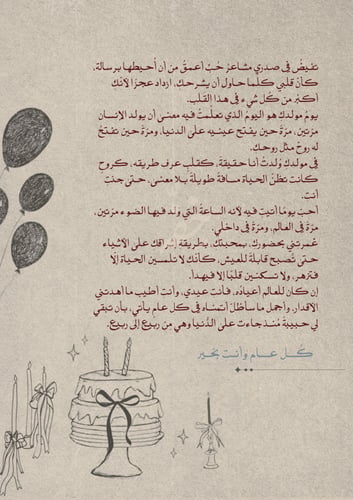 تفيضُ في صدري مشاعرَ حُبٍ أعمقُ من أن أُحيطها برسالة،
كأنّ قلبي كُلّما حاول أن يشرحكِ، ازداد عجزًا لأنكِ
أكبر من كُل شيء في هذا القلب.
يومُ مولدكِ هو اليومُ الذي تعلّمتُ فيه معنى أن يولد الانسان
مرتين، مرّةً حين يفتح عينيه على الدنيا، ومرّةً حين تفتحُ
له روحٌ مثل روحكِ.
في مولدكِ وُلدتُ أنا حقيقةً، كقلب عرف طريقه، كروح
كانت تظنّ الحياة مسافةً طويلةً بلا معنى، حتى جئتِ
أنتِ.
أحبُ يومًا أتيتِ فيه لأنه الساعةُ التي ولد فيها الضوء مرّتين،
مرّة في العالم، ومرّة في داخلي.
غمرتني بحضوركِ، بمحبتكِ، بطريقة إشراقكِ على الأشياء
حتى تُصبح قابلةً للعيش، كأنكِ لا تلمسين الحياة إلّا
فتزهر، ولا تسكنين قلبًا إلا فيهدأ.
إن كان للعالم أعيادُه، فأنتِ عيدي، وأنتِ أطيب ما أهدتني
الأقدار، وأجمل ما سأظلّ أتمناه في كل عام يأتي، بأن تبقي
لي حبيبةً مُنذ جاءت على الدُنيا وهي من ربيعٍ إلى ربيع.
كُل عام وأنتِ بخير